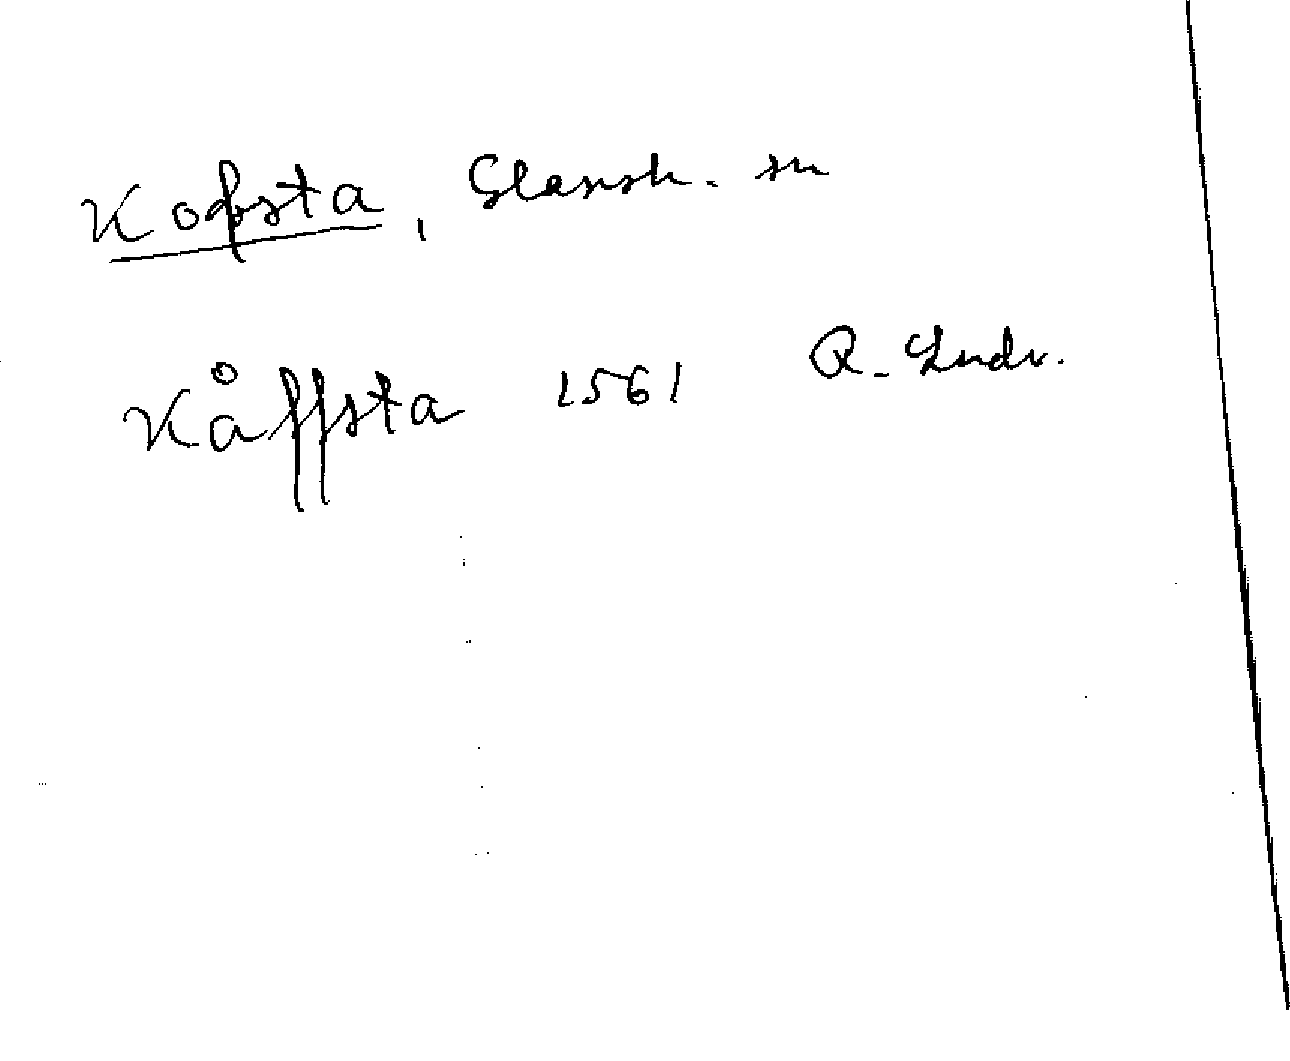 Kofsta, Glansh. sn
Kåffsta 1561 R. Lindv.